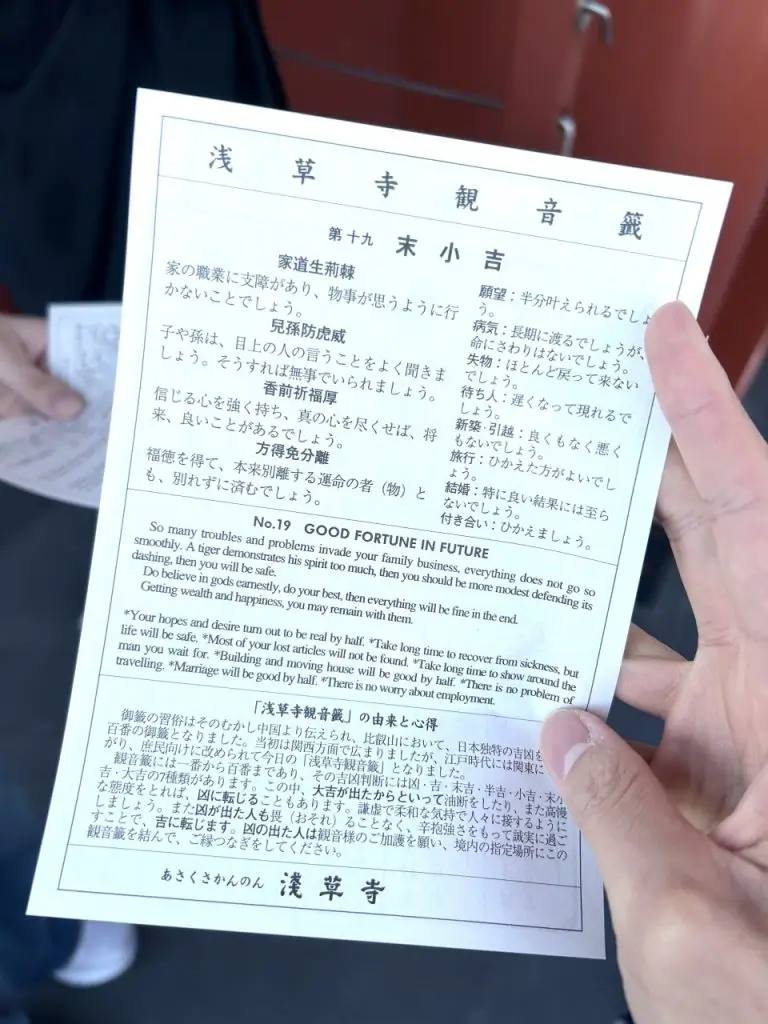 浅草寺観音籤
第十九 末小吉
家道生荊棘
家の職業に支障があり、物事が思うように行
かないことでしょう。
兒孫防虎威
子や孫は、目上の人の言うことをよく聞きま
しょう。そうすれば無事でいられましょう。
香前祈福厚
信じる心を強く持ち、真の心を尽くせば、将
来、良いことがあるでしょう。
方得免分離
福徳を得て、本来別離する運命の者（物）と
も、別れずに済むでしょう。
願望：半分叶えられるでしょ
う。
病気：長期に渡るでしょうが、
命にさわりはないでしょう。
失物：ほとんど戻って来ない
でしょう。
待ち人：遅くなって現れるで
しょう。
新築・引越：良くもなく悪く
もないでしょう。
旅行：ひかえた方がよいでし
ょう。
結婚：特に良い結果には至ら
ないでしょう。
付き合い：ひかえましょう。
No.19 GOOD FORTUNE IN FUTURE
So many troubles and problems invade your family business, everything does not go so
smoothly. A tiger demonstrates his spirit too much, then you should be more modest defending its
dashing, then you will be safe.
Do believe in gods earnestly, do your best, then everything will be fine in the end.
Getting wealth and happiness, you may remain with them.
*Your hopes and desire turn out to be real by half. *Take long time to recover from sickness, but
life will be safe. *Most of your lost articles will not be found. *Take long time to show around the
man you wait for. *Building and moving house will be good by half. *There is no problem of
travelling. *Marriage will be good by half. *There is no worry about employment.
「浅草寺観音籤」の由来と心得
御籤の習俗はそのむかし中国より伝えられ、比叡山において、日本独特の吉凶を
百番の御籤となりました。当初は関西方面で広まりましたが、江戸時代には関東に
がり、庶民向けに改められて今日の「浅草寺観音籤」となりました。
観音籤には一番から百番まであり、その吉凶判断には凶・吉・末吉・半吉・小吉・末小
吉・大吉の7種類があります。この中、大吉が出たからといって油断をしたり、また高慢
な態度をとれば、凶に転じることもあります。謙虚で柔和な気持で人々に接するように
しましょう。また凶が出た人も畏（おそれ）ることなく、辛抱強さをもって誠実に過ご
すことで、吉に転じます。凶の出た人は観音様のご加護を願い、境内の指定場所にこの
観音籤を結んで、ご縁つなぎをしてください。
あさくさかんのん 淺草寺